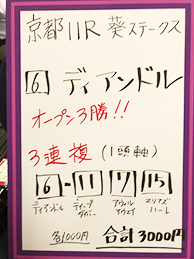 京都11R 葵ステークス
6 ディアンドル
オープン3勝!!
3連複(1頭軸)
6-11 17 15
ディアンドル ディープダイバー アウィルアウェイ マリアズハート
各1000円 合計3000円